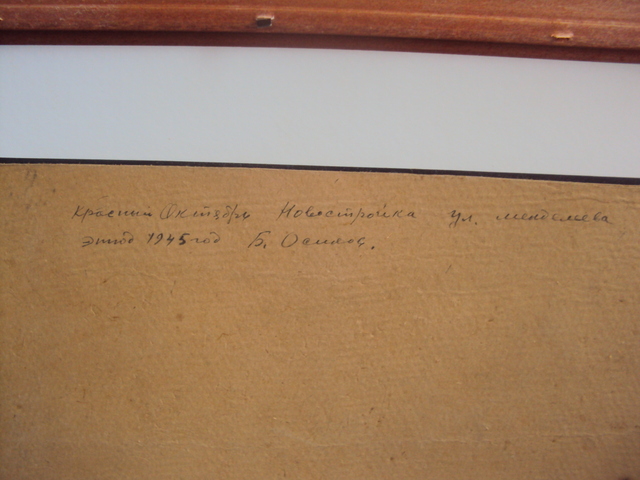 Красный Октябрь Новостройка ул. Менделеева
этюд 1945 год Б. Осипов.